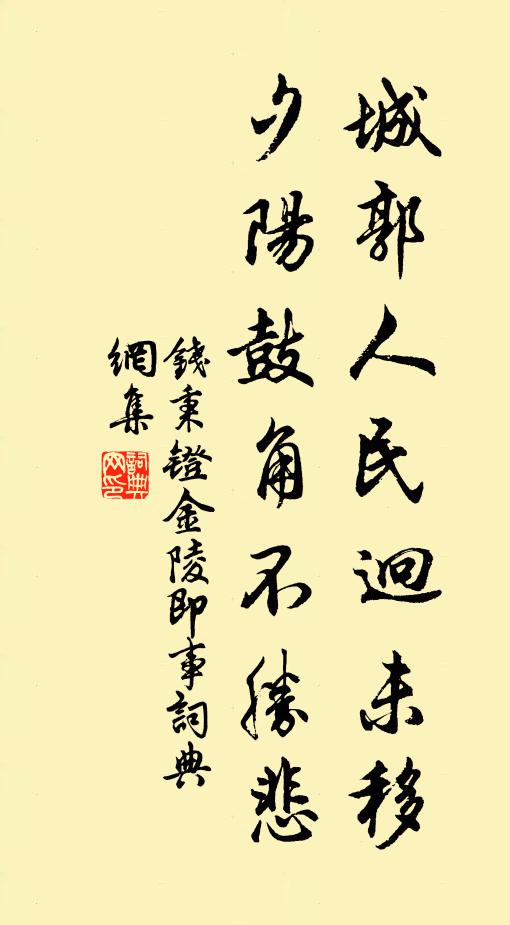 城郭人民迥未移
夕陽鼓角不勝悲
錢秉鐙金陵即事詞典
網集
詞典網印